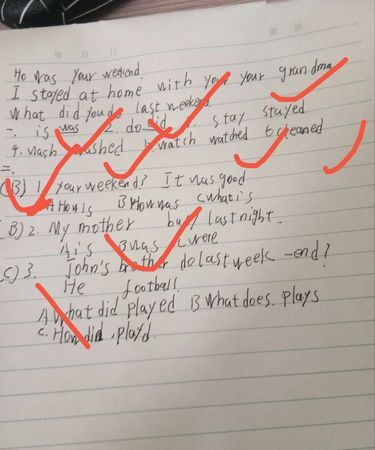 Ho was your weekend.
I stayed at home with your your grandma
What did you do last weekend.
一. is was 2. do did stay stayed
4. wash washed 5 watch watched 6 cleaned
二.
(B) 1. your weekend? It was good
A How is B How was C what is
(B) 2. My mother busy last night.
A is B was C were
(C) 3. John's brother do last week-end?
He football.
A What did played B What does. plays
C. How did, playd.